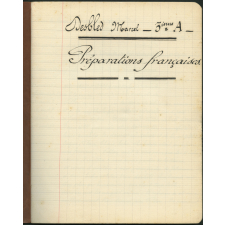 Desbled Marcel — 3ième A —
Préparations françaises